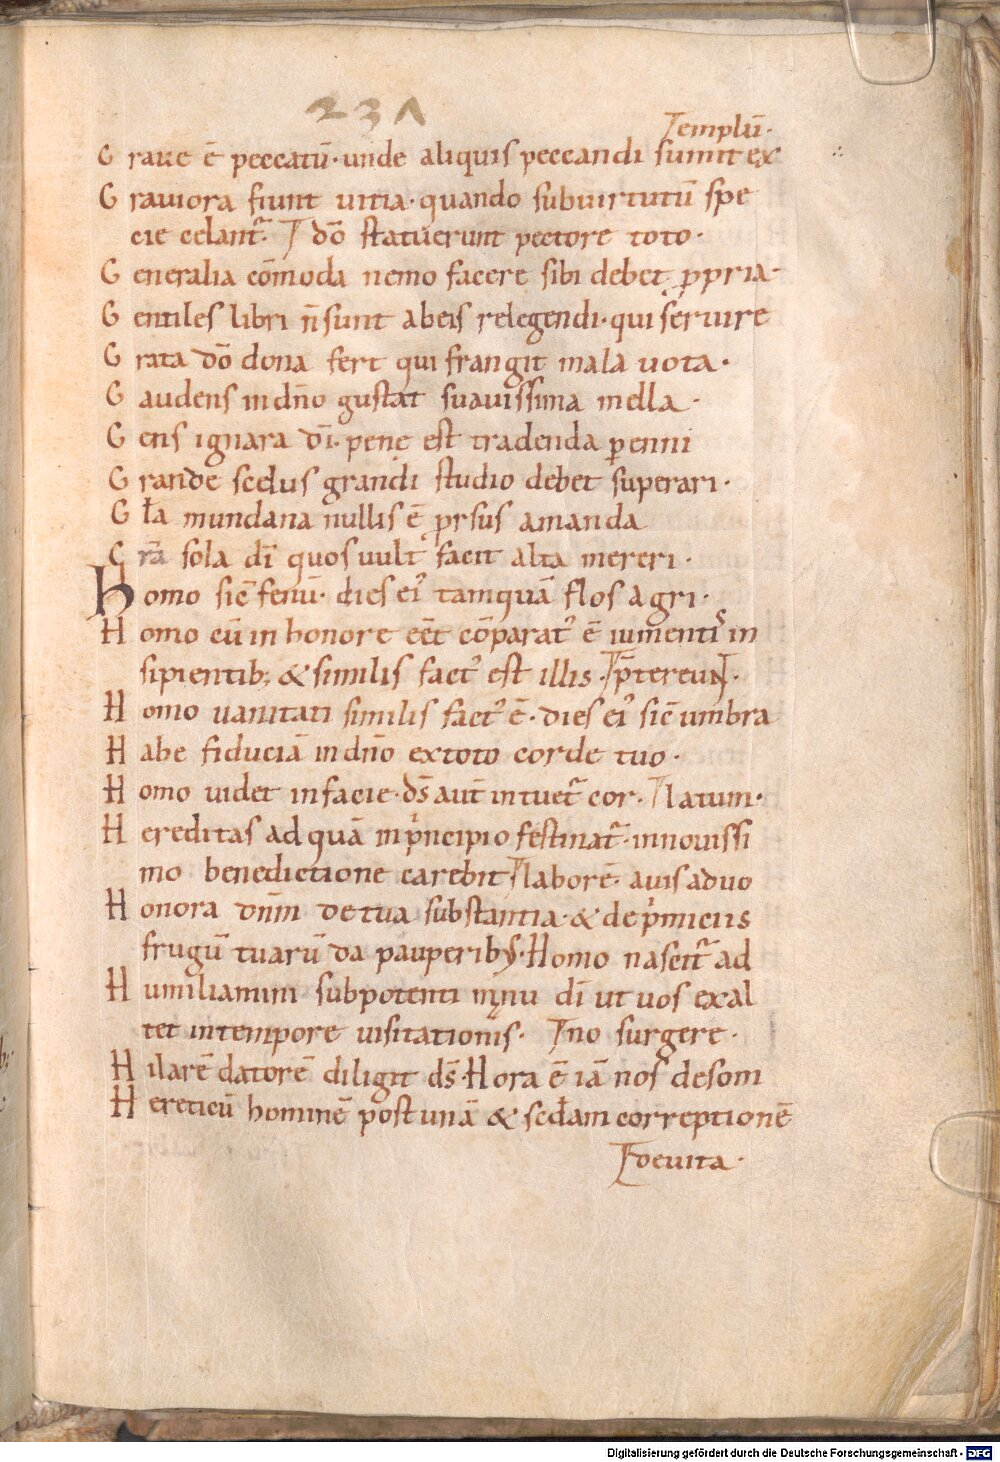 237
Templū·
G raue ē peccatū· unde aliquis peccandi sumit ex
G rauiora fiunt uitia· quando subuirtutū spe
cie celant᷑· dō̄ statuerunt pectore toto·
G eneralia cōmoda nemo facere sibi debet ꝓpria·
G entiles libri n̄ sunt abeis relegendi· qui seruire
G rata dō dona fert qui frangit mala uota·
G audens in dn̄o gustat suauissima mella·
G ens ignara dī· penę est tradenda ꝑenni
G rande scelus grandi studio debet superari·
G ła mundana nullis ē ꝓrsus amanda
G rā sola dī quos uult facit alta mereri·
H omo sic̄ fenū· dies ei᷒ tamquā flos agri·
H omo cū in honore eēt cōparat᷒ ē iumentis in
sipientib; & similis fact᷒ est illis· p̄tereunt·
H omo uanitati similis fact᷒ ē· dies ei᷒ sic̄ umbra
H abe fiduciā in dn̄o ex toto corde tuo·
H omo uidet in facie· ds̄ aut̄ intuet᷑ cor· latum·
H ereditas ad quā in pͥncipio festinat᷑· innouissi
mo benedictione carebit laborē· auis aduo
H onora dn̄m de tua substantia· & de pͥmiciis
frugū tuarū da pauperibus· Homo nascit᷑ ad
H umiliamini subpotenti manu dī ut uos exal
tet in tempore uisitationis· no surgere·
H ilarē datorē diligit ds̄· Hora ē iā nos desom
H ereticū hominē post unā & scd̄am correptionē
deuita·